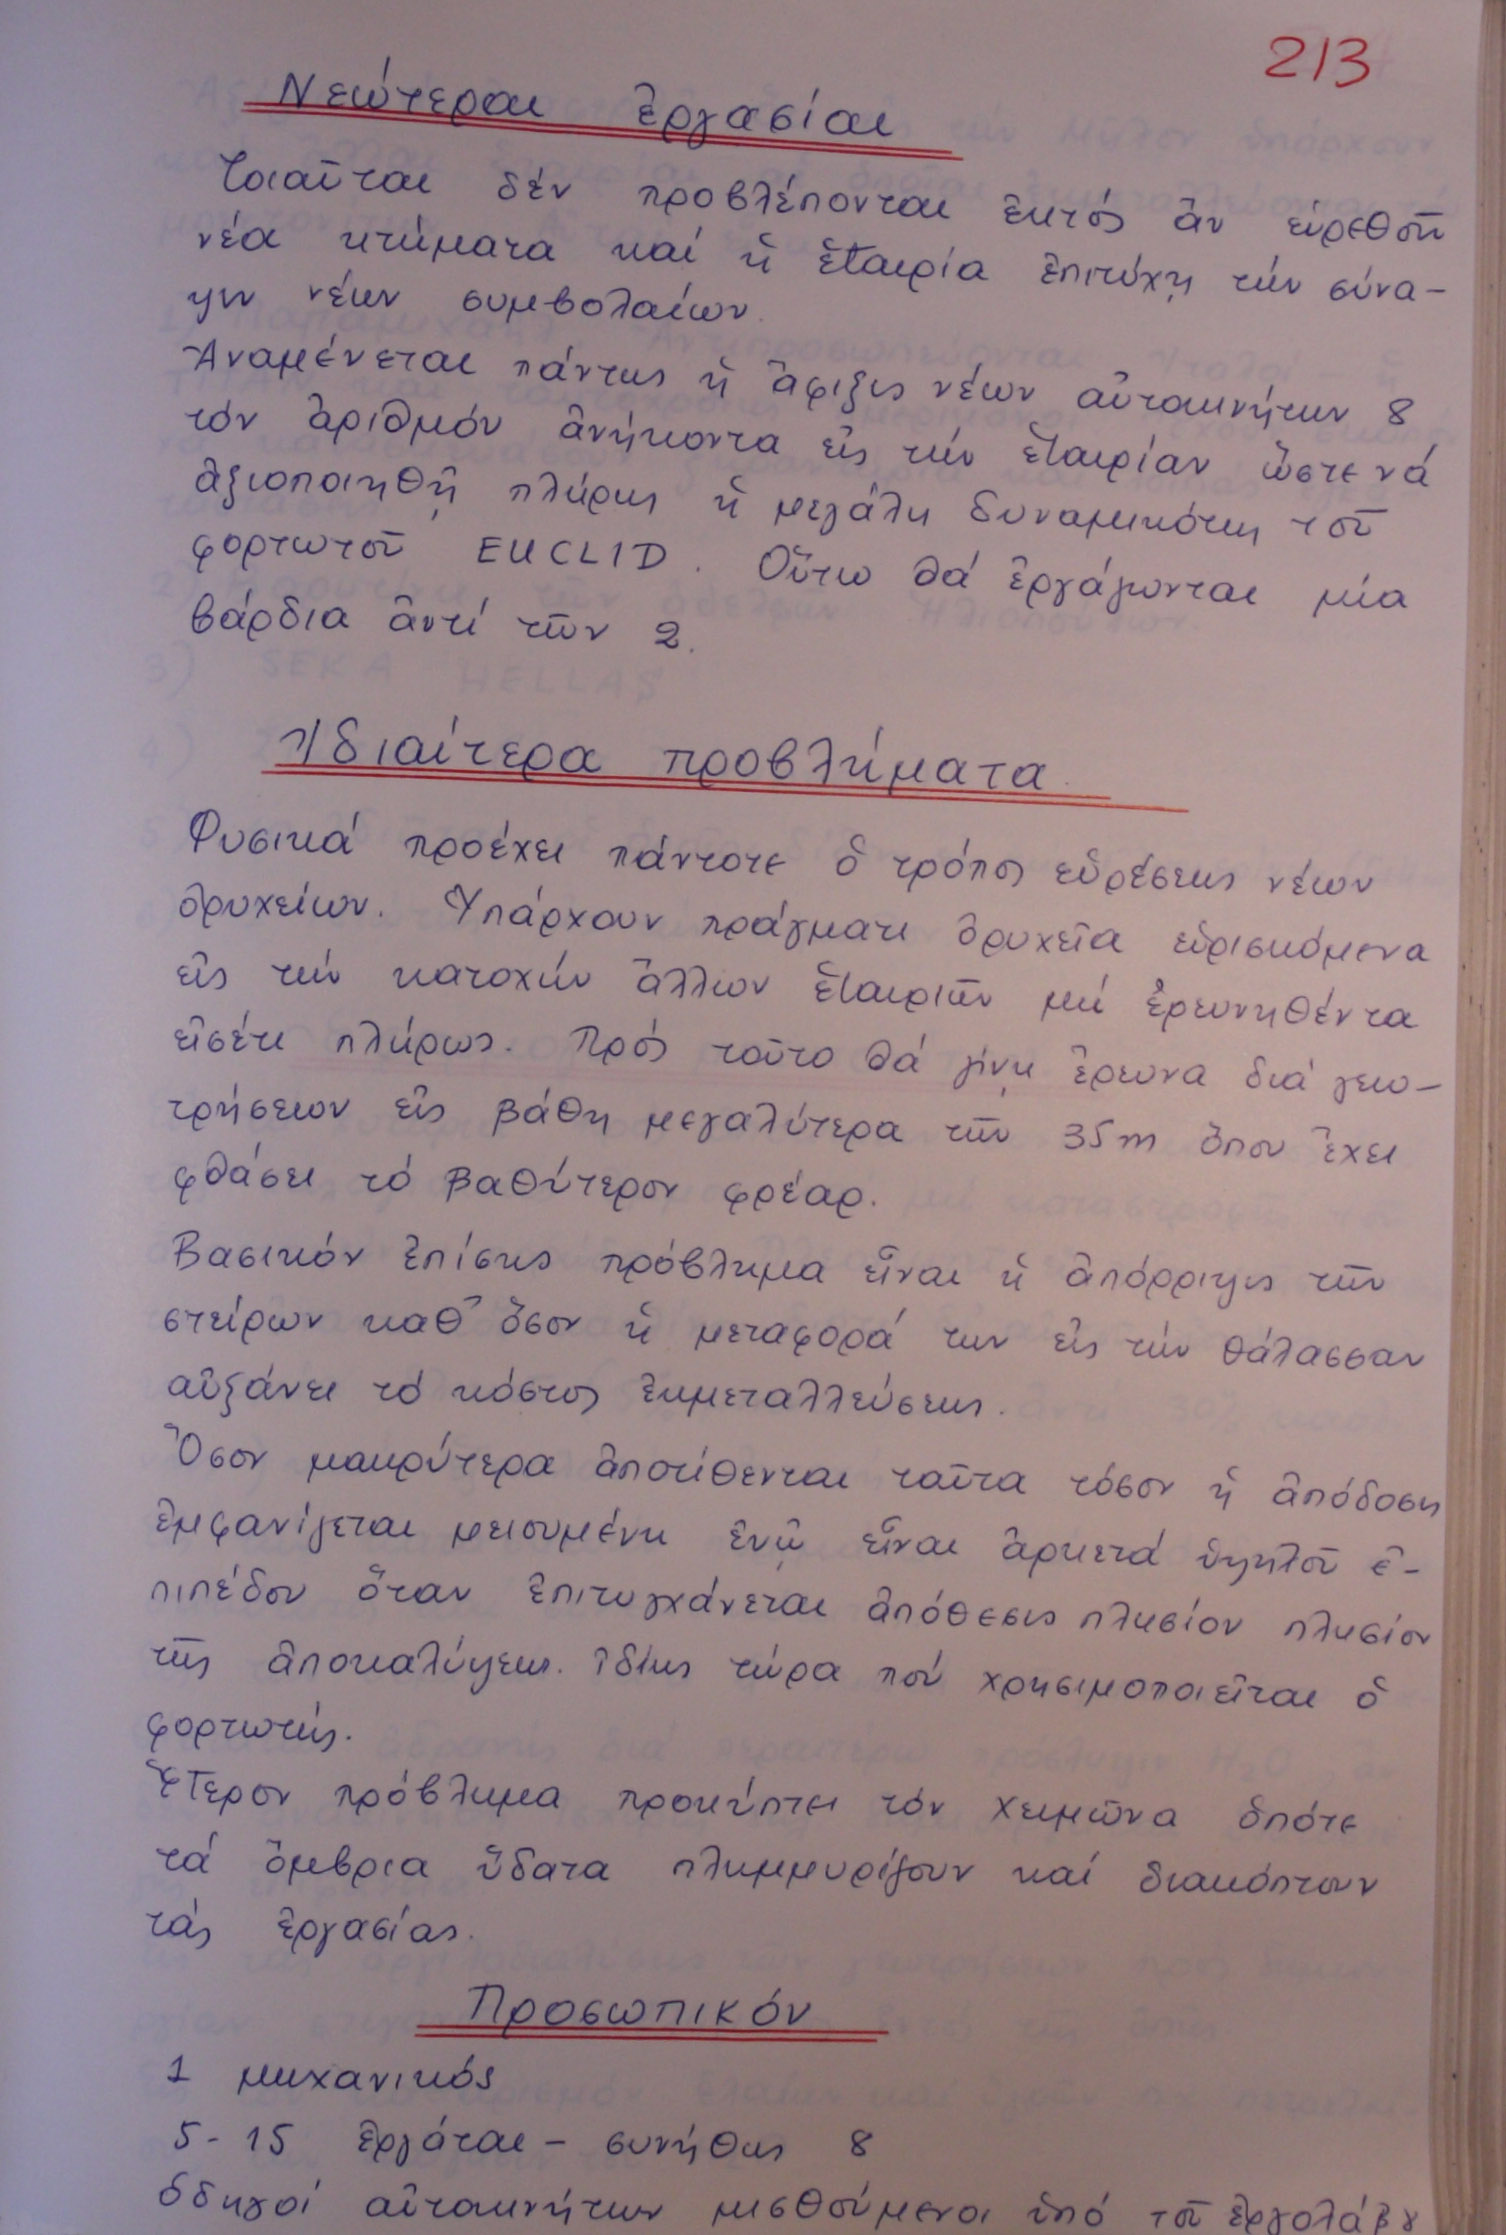 213
Νεώτεραι ἐργασίαι
Τοιαῦται δέν προβλέπονται ἐκτός ἄν εὑρεθοῦν
νέα κτήματα καί ἡ ἑταιρία ἐπιτύχῃ τήν σύνα-
ψιν νέων συμβολαίων.
Ἀναμένεται πάντως ἡ ἄφιξις νέων αὐτοκινήτων 8
τόν ἀριθμόν ἀνήκοντα εἰς τήν ἑταιρίαν ὥστε νά
ἀξιοποιηθῇ πλήρως ἡ μεγάλη δυναμικότης τοῦ
φορτωτοῦ EUCLID. Οὕτω θά ἐργάζωνται μία
βάρδια ἀντί τῶν 2.
Ἰδιαίτερα προβλήματα.
Φυσικά προέχει πάντοτε ὁ τρόπος εὑρέσεως νέων
ὀρυχείων. Ὑπάρχουν πράγματι ὀρυχεῖα εὑρισκόμενα
εἰς τήν κατοχήν ἄλλων ἑταιριῶν μή ἐρευνηθέντα
εἰσέτι πλήρως. Πρός τοῦτο θά γίνῃ ἔρευνα διά γεω-
τρήσεων εἰς βάθη μεγαλύτερα τῶν 35m ὅπου ἔχει
φθάσει τό βαθύτερον φρέαρ.
Βασικόν ἐπίσης πρόβλημα εἶναι ἡ ἀπόρριψις τῶν
στείρων καθ' ὅσον ἡ μεταφορά των εἰς τήν θάλασσαν
αὐξάνει τό κόστος ἐκμεταλλεύσεως.
Ὅσον μακρύτερα ἀποτίθενται ταῦτα τόσον ἡ ἀπόδοσις
ἐμφανίζεται μειουμένη ἐνῷ εἶναι ἀρκετά ὑψηλοῦ ἐ-
πιπέδου ὅταν ἐπιτυγχάνεται ἀπόθεσις πλησίον πλησίον
τῆς ἀποκαλύψεως. ἰδίως τώρα πού χρησιμοποιεῖται ὁ
φορτωτής.
Ἕτερον πρόβλημα προκύπτει τόν χειμῶνα ὁπότε
τά ὄμβρια ὕδατα πλημμυρίζουν καί διακόπτουν
τάς ἐργασίας.
Προσωπικόν
1 μηχανικός
5-15 ἐργάται - συνήθως 8
ὁδηγοί αὐτοκινήτων μισθούμενοι ὑπό τοῦ ἐργολάβου